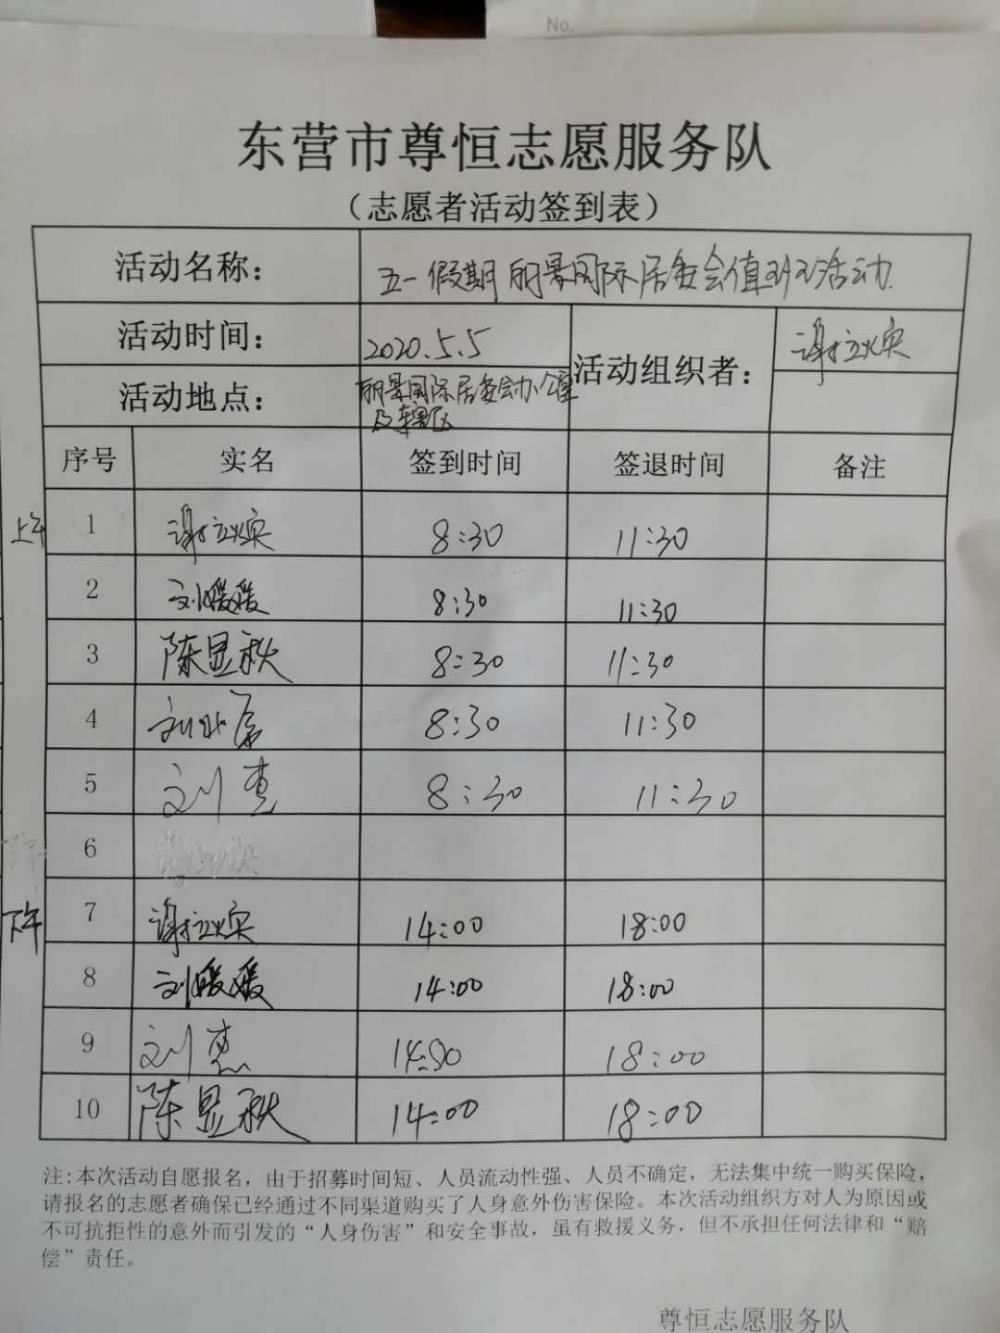 No.
东营市尊恒志愿服务队
（志愿者活动签到表）
活动名称： 五一假期丽景国际居委会值班活动
活动时间： 2020.5.5 活动组织者：
活动地点： 丽景国际居委会办公室
及辖区
序号 实名 签到时间 签退时间 备注
上午 1 8:30 11:30
2 刘媛媛 8:30 11:30
3 陈显秋 8:30 11:30
4 8:30 11:30
5 8:30 11:30
6
下午 7 14:00 18:00
8 刘媛媛 14:00 18:00
9 14:00 18:00
10 陈显秋 14:00 18:00
注:本次活动自愿报名，由于招募时间短、人员流动性强、人员不确定，无法集中统一购买保险，
请报名的志愿者确保已经通过不同渠道购买了人身意外伤害保险。本次活动组织方对人为原因或
不可抗拒性的意外而引发的“人身伤害”和安全事故，虽有救援义务，但不承担任何法律和“赔
偿”责任。
尊恒志愿服务队